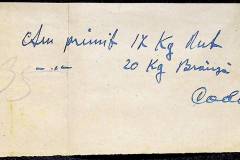 Am primit 12 Kg Unt
—„— 20 Kg Brânză